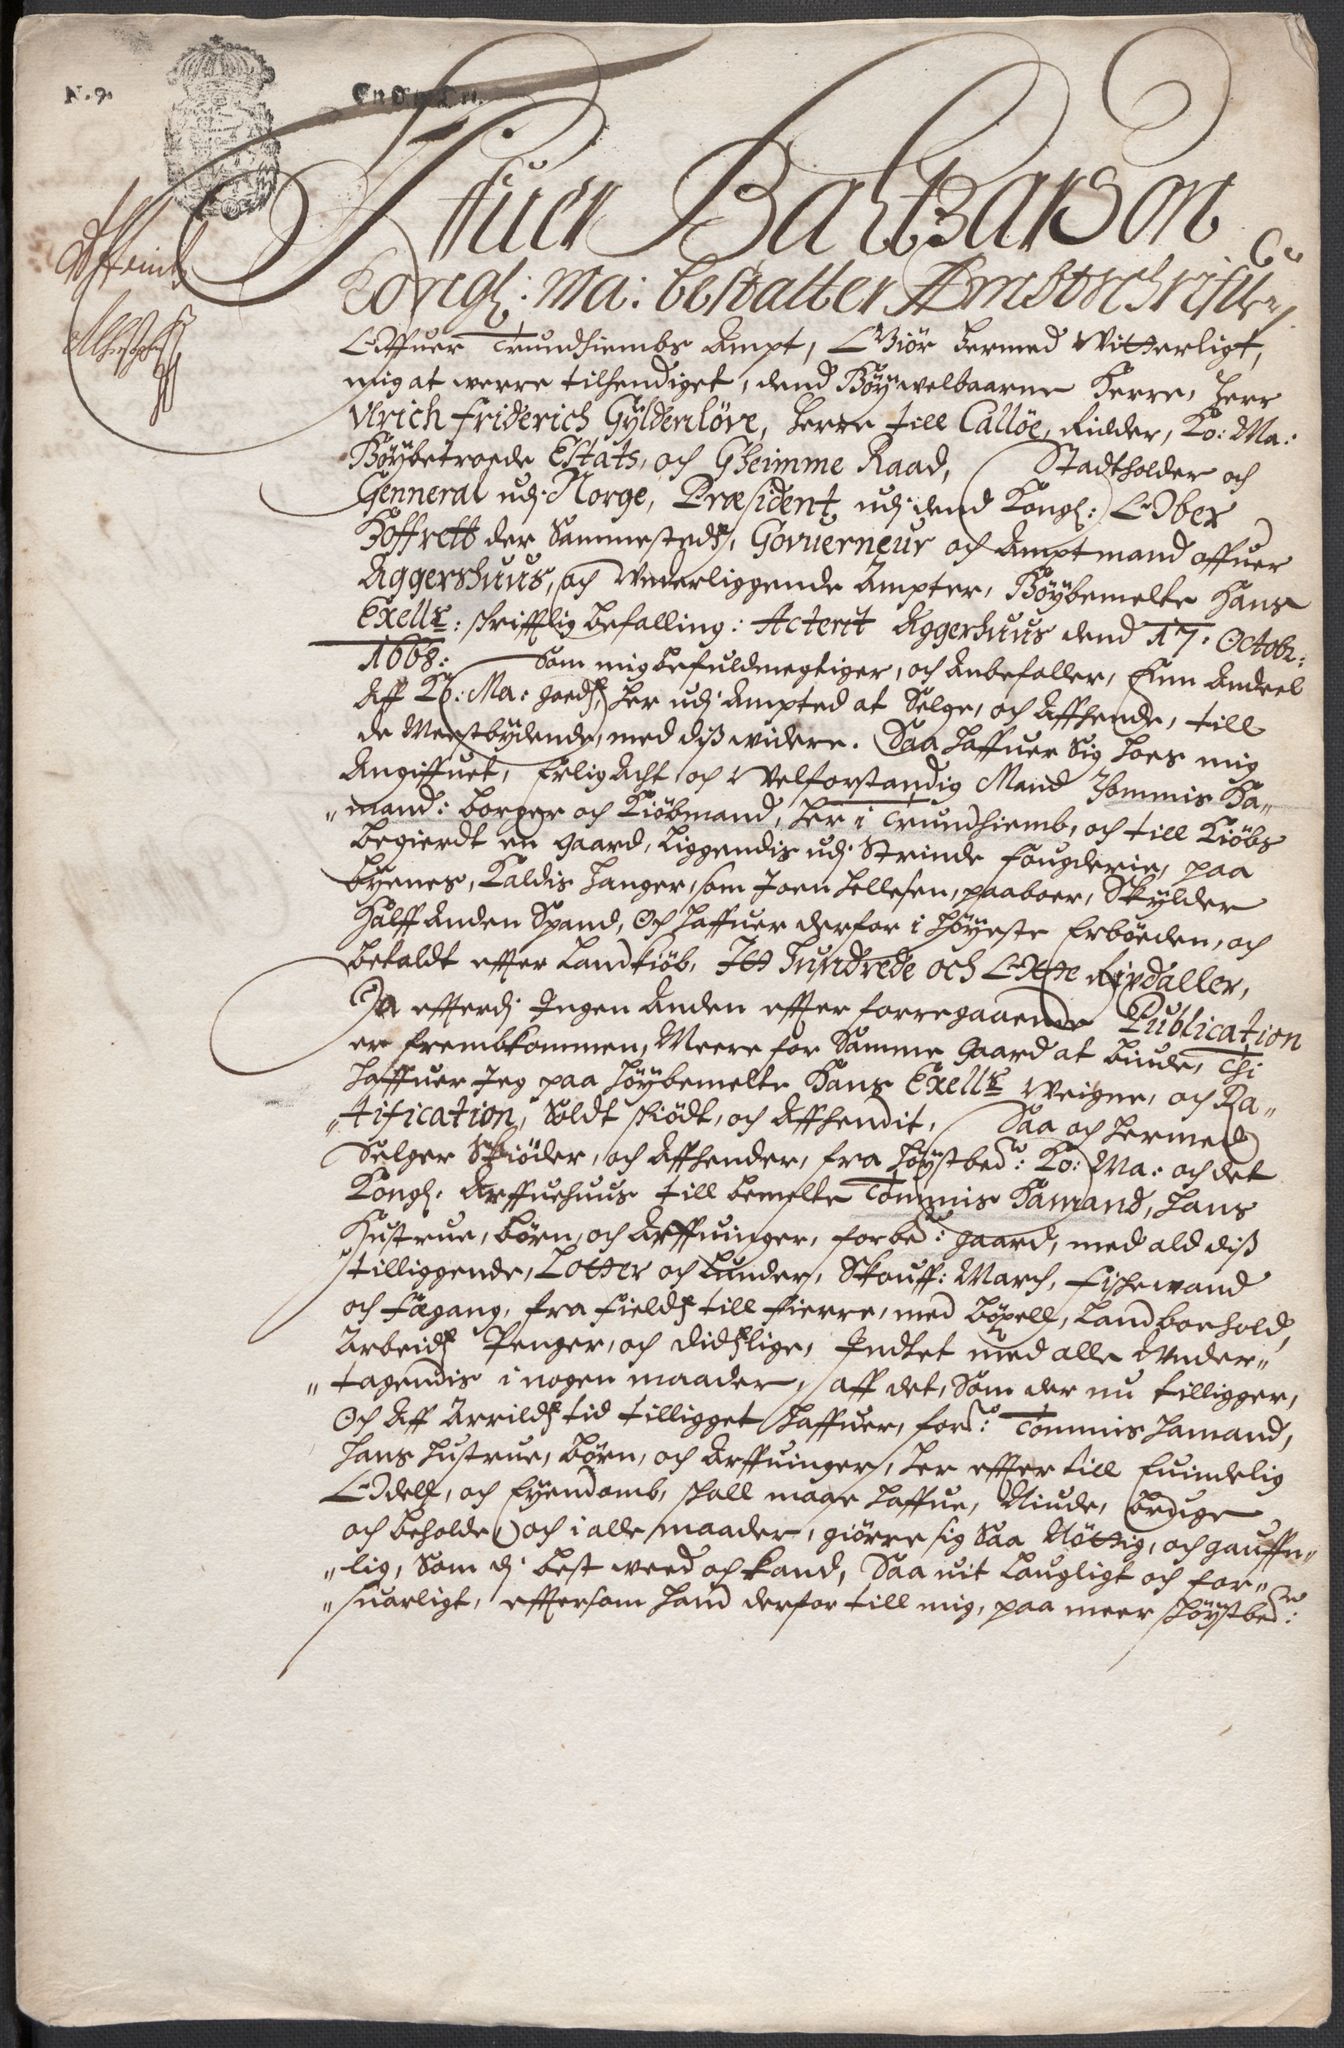 N. 9.
Iffuer Baltzarson
Kongl: Ma: bestalter Ambtschrifuer
Offuer Trundhiembs Ampt, Giör hermed Witterligt,
mig at werre tilhendiget, dend Höy welbaarne Herre, Herr
Ulrich Friderich Gyldenlöve, Herre till Callöe, Ridder, Ko: Ma:
Höybetroede Estats, och Gheimme Raad, Stadtholder och
Genneral udj Norge, Præsident udj dend Kongl: Ober
Hoffrett der Sammestedz, Govuerneur och Amptmand offuer
Aggershuus, och Underliggende Ampter, Höybemelte Hans
Excellz: skrifftlig befalling: Acterit Aggershuus dend 17. Octobr:
1668: Som mig befuldmegtiger, och Anbefaller, Einn Andeel
Aff Ko: Ma: goedz, her udj Ampted at Selge, och Affhende, till
de Meestbydende, med diss widere. Saa haffuer Sig hoes mig
Angiffuet, Erlig Acht och Velforstandig Mand Thommis Ha-
"mand: borger och Kiöbmand, her i Trundhiemb, och till Kiöbs
begierdt en gaard, liggendis udj Strinde fougderie, paa
byenes, Kaldis Langer, som Joen Hellesen, paaboer, Skylder
Halff Anden Spand, Och haffuer derfor i Höyeste Erböeden, och
betaldt effter Landkiöb, Itt Hundrede och Otte Rixdaller,
Ja effterdj Ingen Anden effter forregaaende Publication
er frembkommen, Meere for Samme Gaard at biude, Thi
haffuer Jeg paa Höybemelte Hans Excellz Weigne, och Ra-
"tification, Soldt skiödt, och Affhendit, Saa och hermed
Selger Skiöder, och Affhender, fra höystbede: Ko: Ma: och det
Kongl. Arffuehuus till bemelte Tommis Hamand, hans
Hustrue, börn, och Arffuinger, forbede: gaard, med ald diss
tilliggende, Lotter och Lunder, Skouff: March, Fischewand
och Fægang, fra Fieldz till Fierre, med böxell, Landboehold,
Arbeidz Penger, och didzlige, Indtet med alle Under-
"tagendis i nogen maader, aff det, Som der nu tilligger,
Och Aff Arrildz tid tilligget haffuer, forne: Tommis Hamand,
hans hustrue, börn, och Arffuinger, her effter till Euindelig
Odell, och Eyendomb, skall maae haffue, Niude, bruge
och beholde, och i alle maader, giörre sig Saa Nöttig, och gauffn-
"lig, Som dj best weed och kand, Saa uit laugligt och for-
"suarligt, effttersom hand derfor till mig, paa meer höystbede: